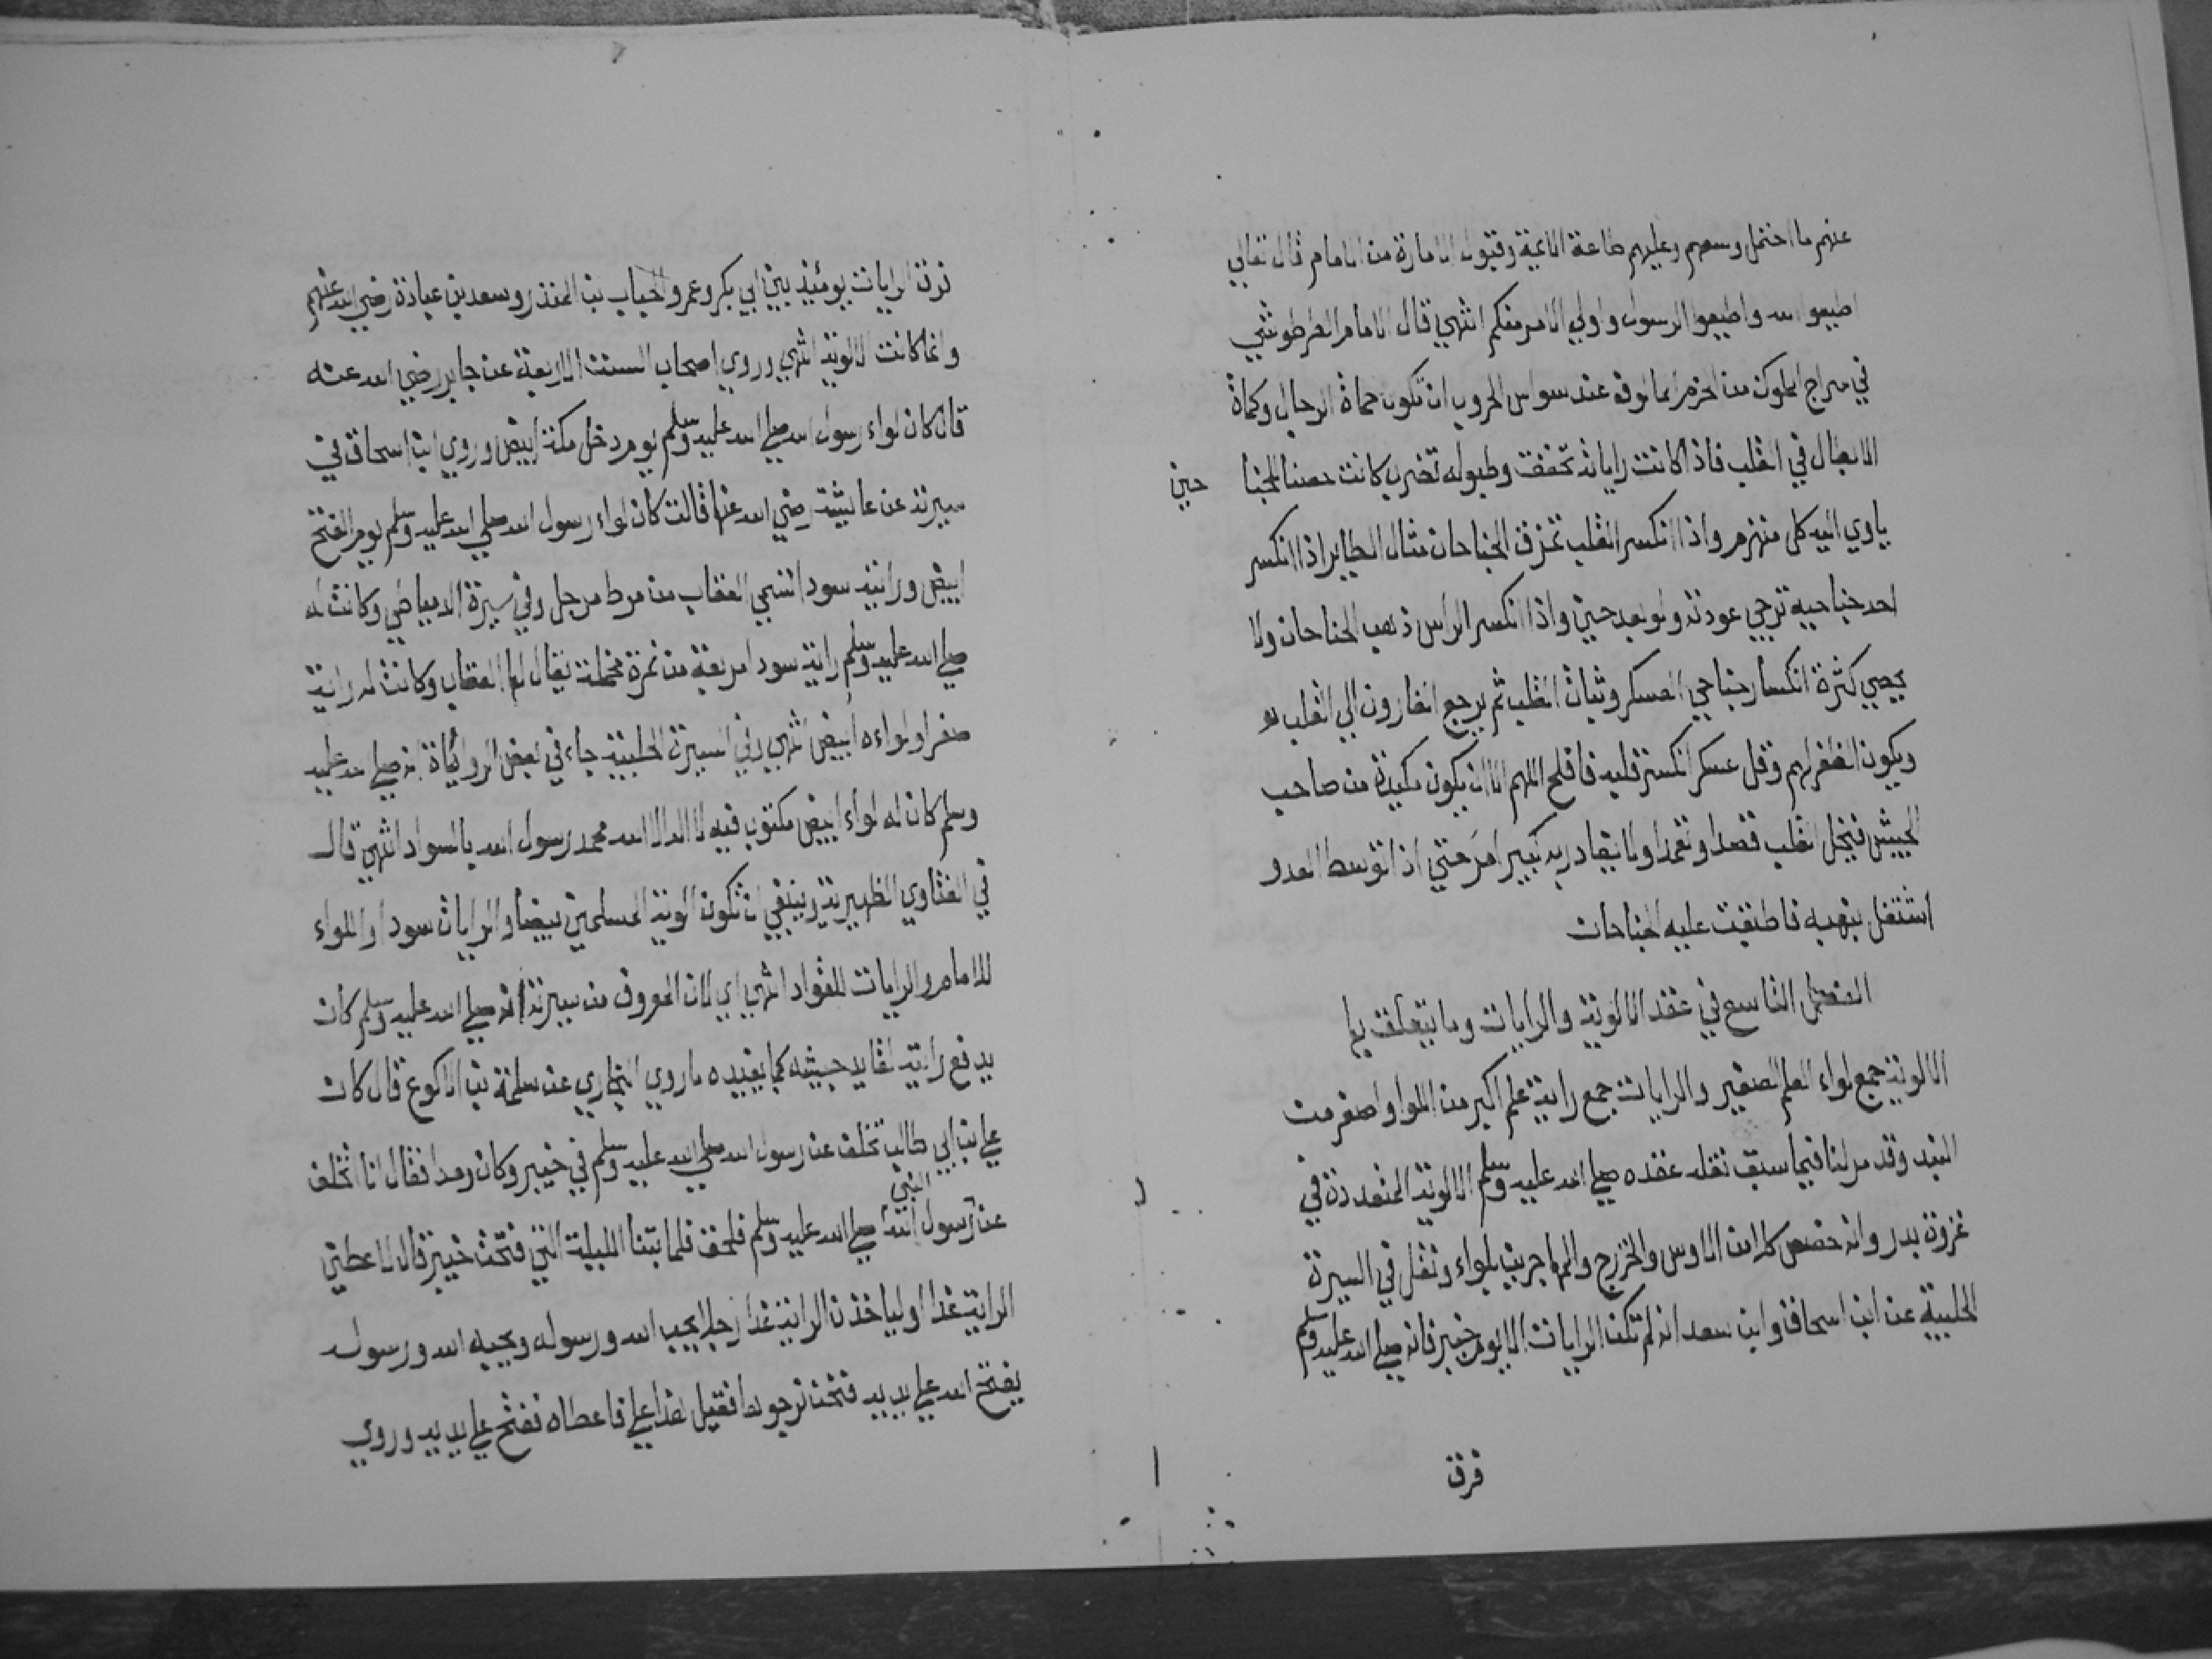 عنهم ما احتمل وسعهم وعليهم طاعة الائمة وقبول الامارة من الامام قال تعالي
اطيعوا الله واطيعوا الرسول واولي الامر منكم انتهي قال الامام الطرطوشي
في سراج الملوك من الحزم المالوف عند سواس الحروب ان تكون حماة الرجال وكماة
الابطال في القلب فاذا كانت راياته تخفق وطبوله تضرب كانت حصنا للجناحين
ياوي اليه كل منهزم واذا انكسر القلب تمزق الجناحان مثال الطاير اذا انكسر
احد جناحيه ترجي عودته ولو بعد حين واذا انكسر الراس ذهب الجناحان ولا
يحصي كثرة انكسار جناحي العسكر وثبات القلب ثم يرجع الفارون الي القلب
ويكون الظفر لهم وقل عسكر انكسر قلبه فافلح اللهم الا ان يكون مكيدة من صاحب
الجيش فيخل القلب قصدا وتعمدا ولا يغادر به كبير امر حتي اذا توسط العدو
اشتغل بنهبه فاطبقت عليه الجناحان
الفصل التاسع في عقد الالوية والرايات وما يتعلق بها
الالوية جمع لواء العلم الصغير والرايات جمع راية علم اكبر من اللوا واصغر من
البند وقد مر لنا فيما سبق نقله عقده صلي الله عليه وسلم الالوية المتعددة في
غزوة بدر وانه خصص كلا من الاوس والخزرج والمهاجرين بلواء ونقل في السيرة
الحلبية عن ابن اسحاق وابن سعد انه لم تكن الرايات الا يوم خيبر فانه صلي الله عليه وسلم
فرق
فرق الرايات يومئذ بين ابي بكر وعمر والحباب بن المنذر وسعد بن عبادة رضي الله عنهم
وانما كانت الالوية انتهي وروي اصحاب السنن الاربعة عن جابر رضي الله عنه
قال كان لواء رسول الله صلي الله عليه وسلم يوم دخل مكة ابيض وروي ابن اسحاق في
سيرته عن عايشة رضي الله عنها قالت كان لواء رسول الله صلي الله عليه وسلم يوم الفتح
ابيض ورايته سودا تسمي العقاب من مرط مرجل وفي سيرة الدمياطي وكانت له
صلي الله عليه وسلم راية سودا مربعة من نمرة مخملة يقال لها العقاب وكانت له راية
صفرا ولواءه ابيض انتهي وفي السيرة الحلبية جاء في بعض الروايات انه صلي الله عليه
وسلم كان له لواء ابيض مكتوب فيه لا اله الا الله محمد رسول الله بالسواد انتهي قال
في الفتاوي الظهيرية وينبغي ان تكون الوية المسلمين بيضا والرايات سودا واللواء
للامام والرايات للقواد انتهي اي لان المعروف من سيرته انه صلي الله عليه وسلم كان
يدفع رايته لقايد جيشه كما يفيده ما روي البخاري عن سلمة بن الاكوع قال كان
علي بن ابي طالب تخلف عن رسول الله صلي الله عليه وسلم في خيبر وكان رمدا فقال انا اتخلف
عن رسول الله النبي صلي الله عليه وسلم فلحق فلما بتنا الليلة التي فتحت خيبر قال لاعطين
الراية غدا او لياخذن الراية غدا رجلا يحب الله ورسوله ويحبه الله ورسوله
يفتح الله علي يديه فنحن نرجوها فقيل هذا علي فاعطاه ففتح علي يديه وروي